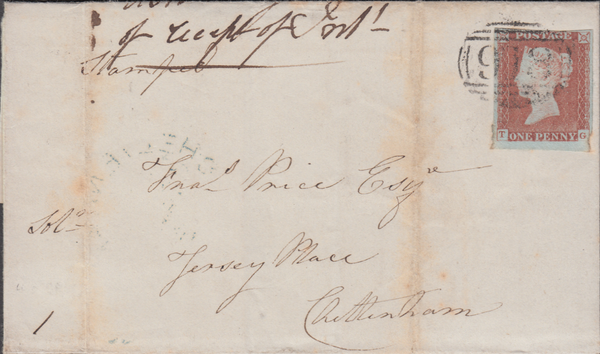 of recpt of Instt
Stamped
POSTAGE
T ONE PENNY G
Fras. Price Esqre
Solr.
Jersey Place
Cheltenham
1